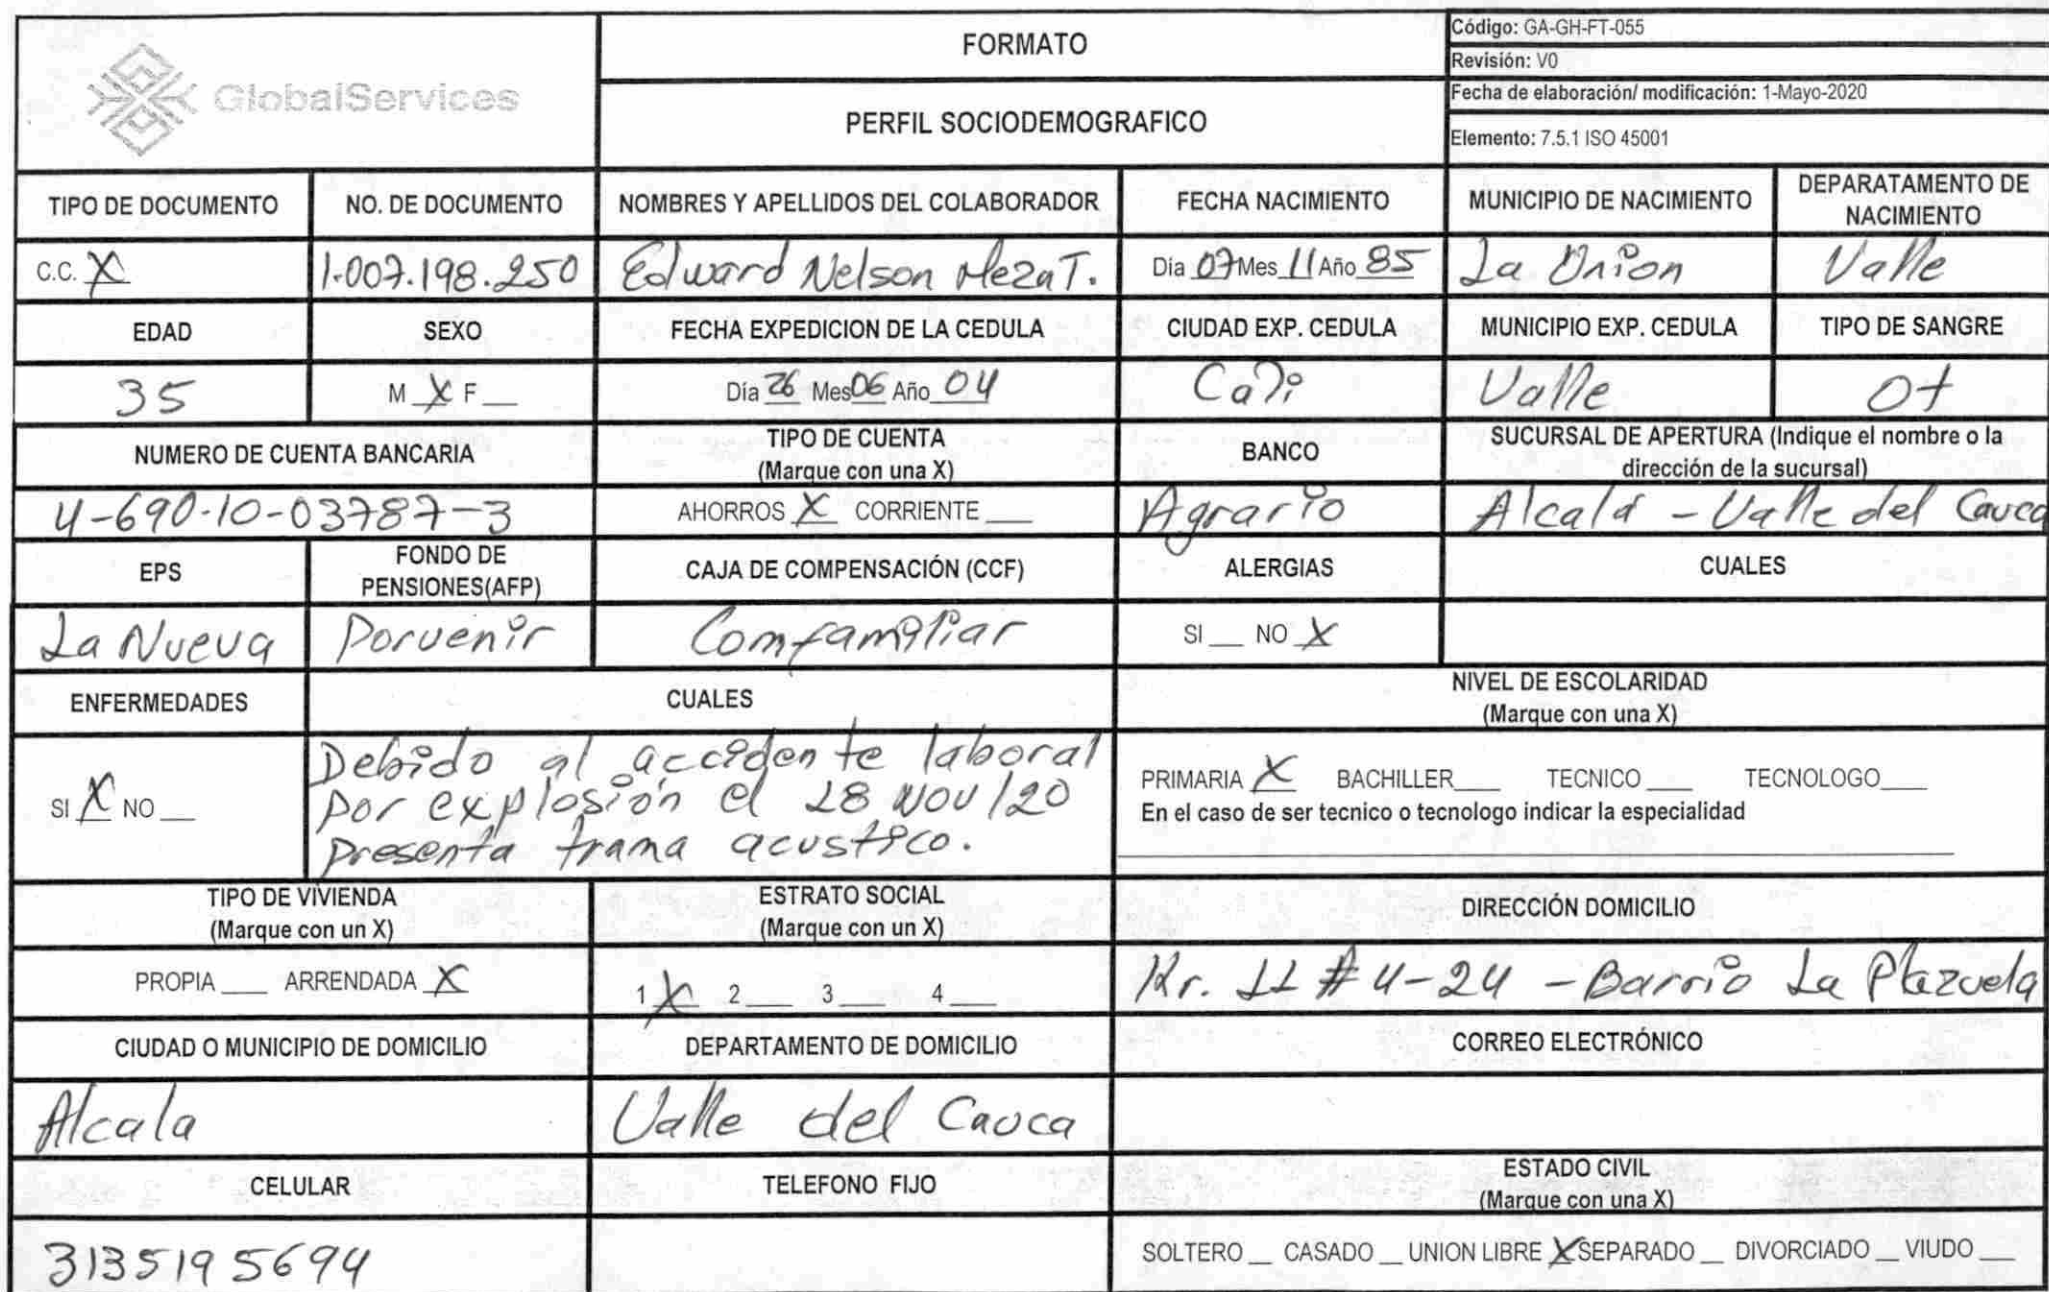 GlobalServices
FORMATO
PERFIL SOCIODEMOGRAFICO
Código: GA-GH-FT-055
Revisión: V0
Fecha de elaboración/ modificación: 1-Mayo-2020
Elemento: 7.5.1 ISO 45001
TIPO DE DOCUMENTO NO. DE DOCUMENTO NOMBRES Y APELLIDOS DEL COLABORADOR FECHA NACIMIENTO MUNICIPIO DE NACIMIENTO DEPARATAMENTO DE NACIMIENTO
C.C. X 1.007.198.250 Edward Nelson Meza T. Día 07 Mes 11 Año 85 La Union Valle
EDAD SEXO FECHA EXPEDICION DE LA CEDULA CIUDAD EXP. CEDULA MUNICIPIO EXP. CEDULA TIPO DE SANGRE
35 M X F __ Día 26 Mes 06 Año 04 Cali Valle O+
NUMERO DE CUENTA BANCARIA TIPO DE CUENTA (Marque con una X) BANCO SUCURSAL DE APERTURA (Indique el nombre o la dirección de la sucursal)
4-690-10-03787-3 AHORROS X CORRIENTE __ Agrario Alcalá - Valle del Cauca
EPS FONDO DE PENSIONES(AFP) CAJA DE COMPENSACIÓN (CCF) ALERGIAS CUALES
La Nueva Porvenir Comfamiliar SI __ NO X
ENFERMEDADES CUALES NIVEL DE ESCOLARIDAD (Marque con una X)
SI X NO __
Debido al accidente laboral
por explosión el 28 Nov/20
presenta trama acustico.
PRIMARIA X BACHILLER___ TECNICO ___ TECNOLOGO___
En el caso de ser tecnico o tecnologo indicar la especialidad
TIPO DE VIVIENDA (Marque con un X) ESTRATO SOCIAL (Marque con un X) DIRECCIÓN DOMICILIO
PROPIA ___ ARRENDADA X 1 X 2 ___ 3 ___ 4 ___ Kr. 11 # 4-24 - Barrio La Plazuela
CIUDAD O MUNICIPIO DE DOMICILIO DEPARTAMENTO DE DOMICILIO CORREO ELECTRÓNICO
Alcala Valle del Cauca
CELULAR TELEFONO FIJO ESTADO CIVIL (Marque con una X)
3135195694 SOLTERO __ CASADO __ UNION LIBRE X SEPARADO __ DIVORCIADO __ VIUDO __